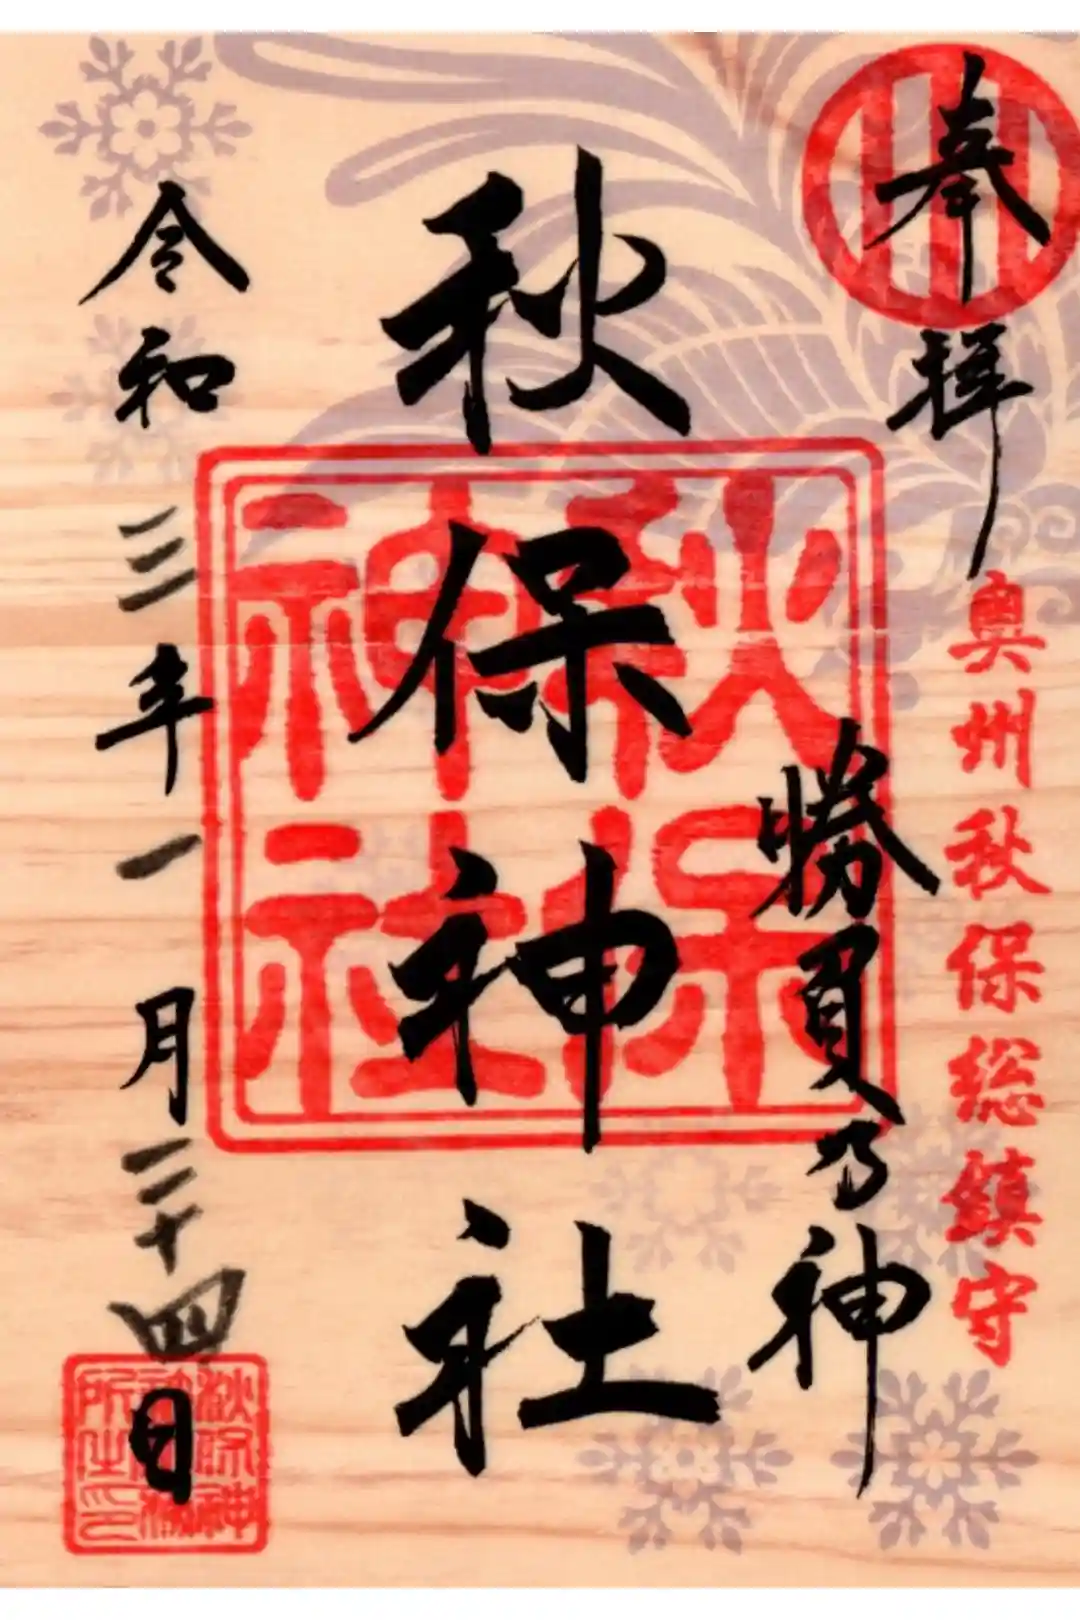 奉拝
奥州秋保総鎮守
勝負乃神
秋保神社
秋保神社
令和三年一月二十四日
秋保神社務所之印